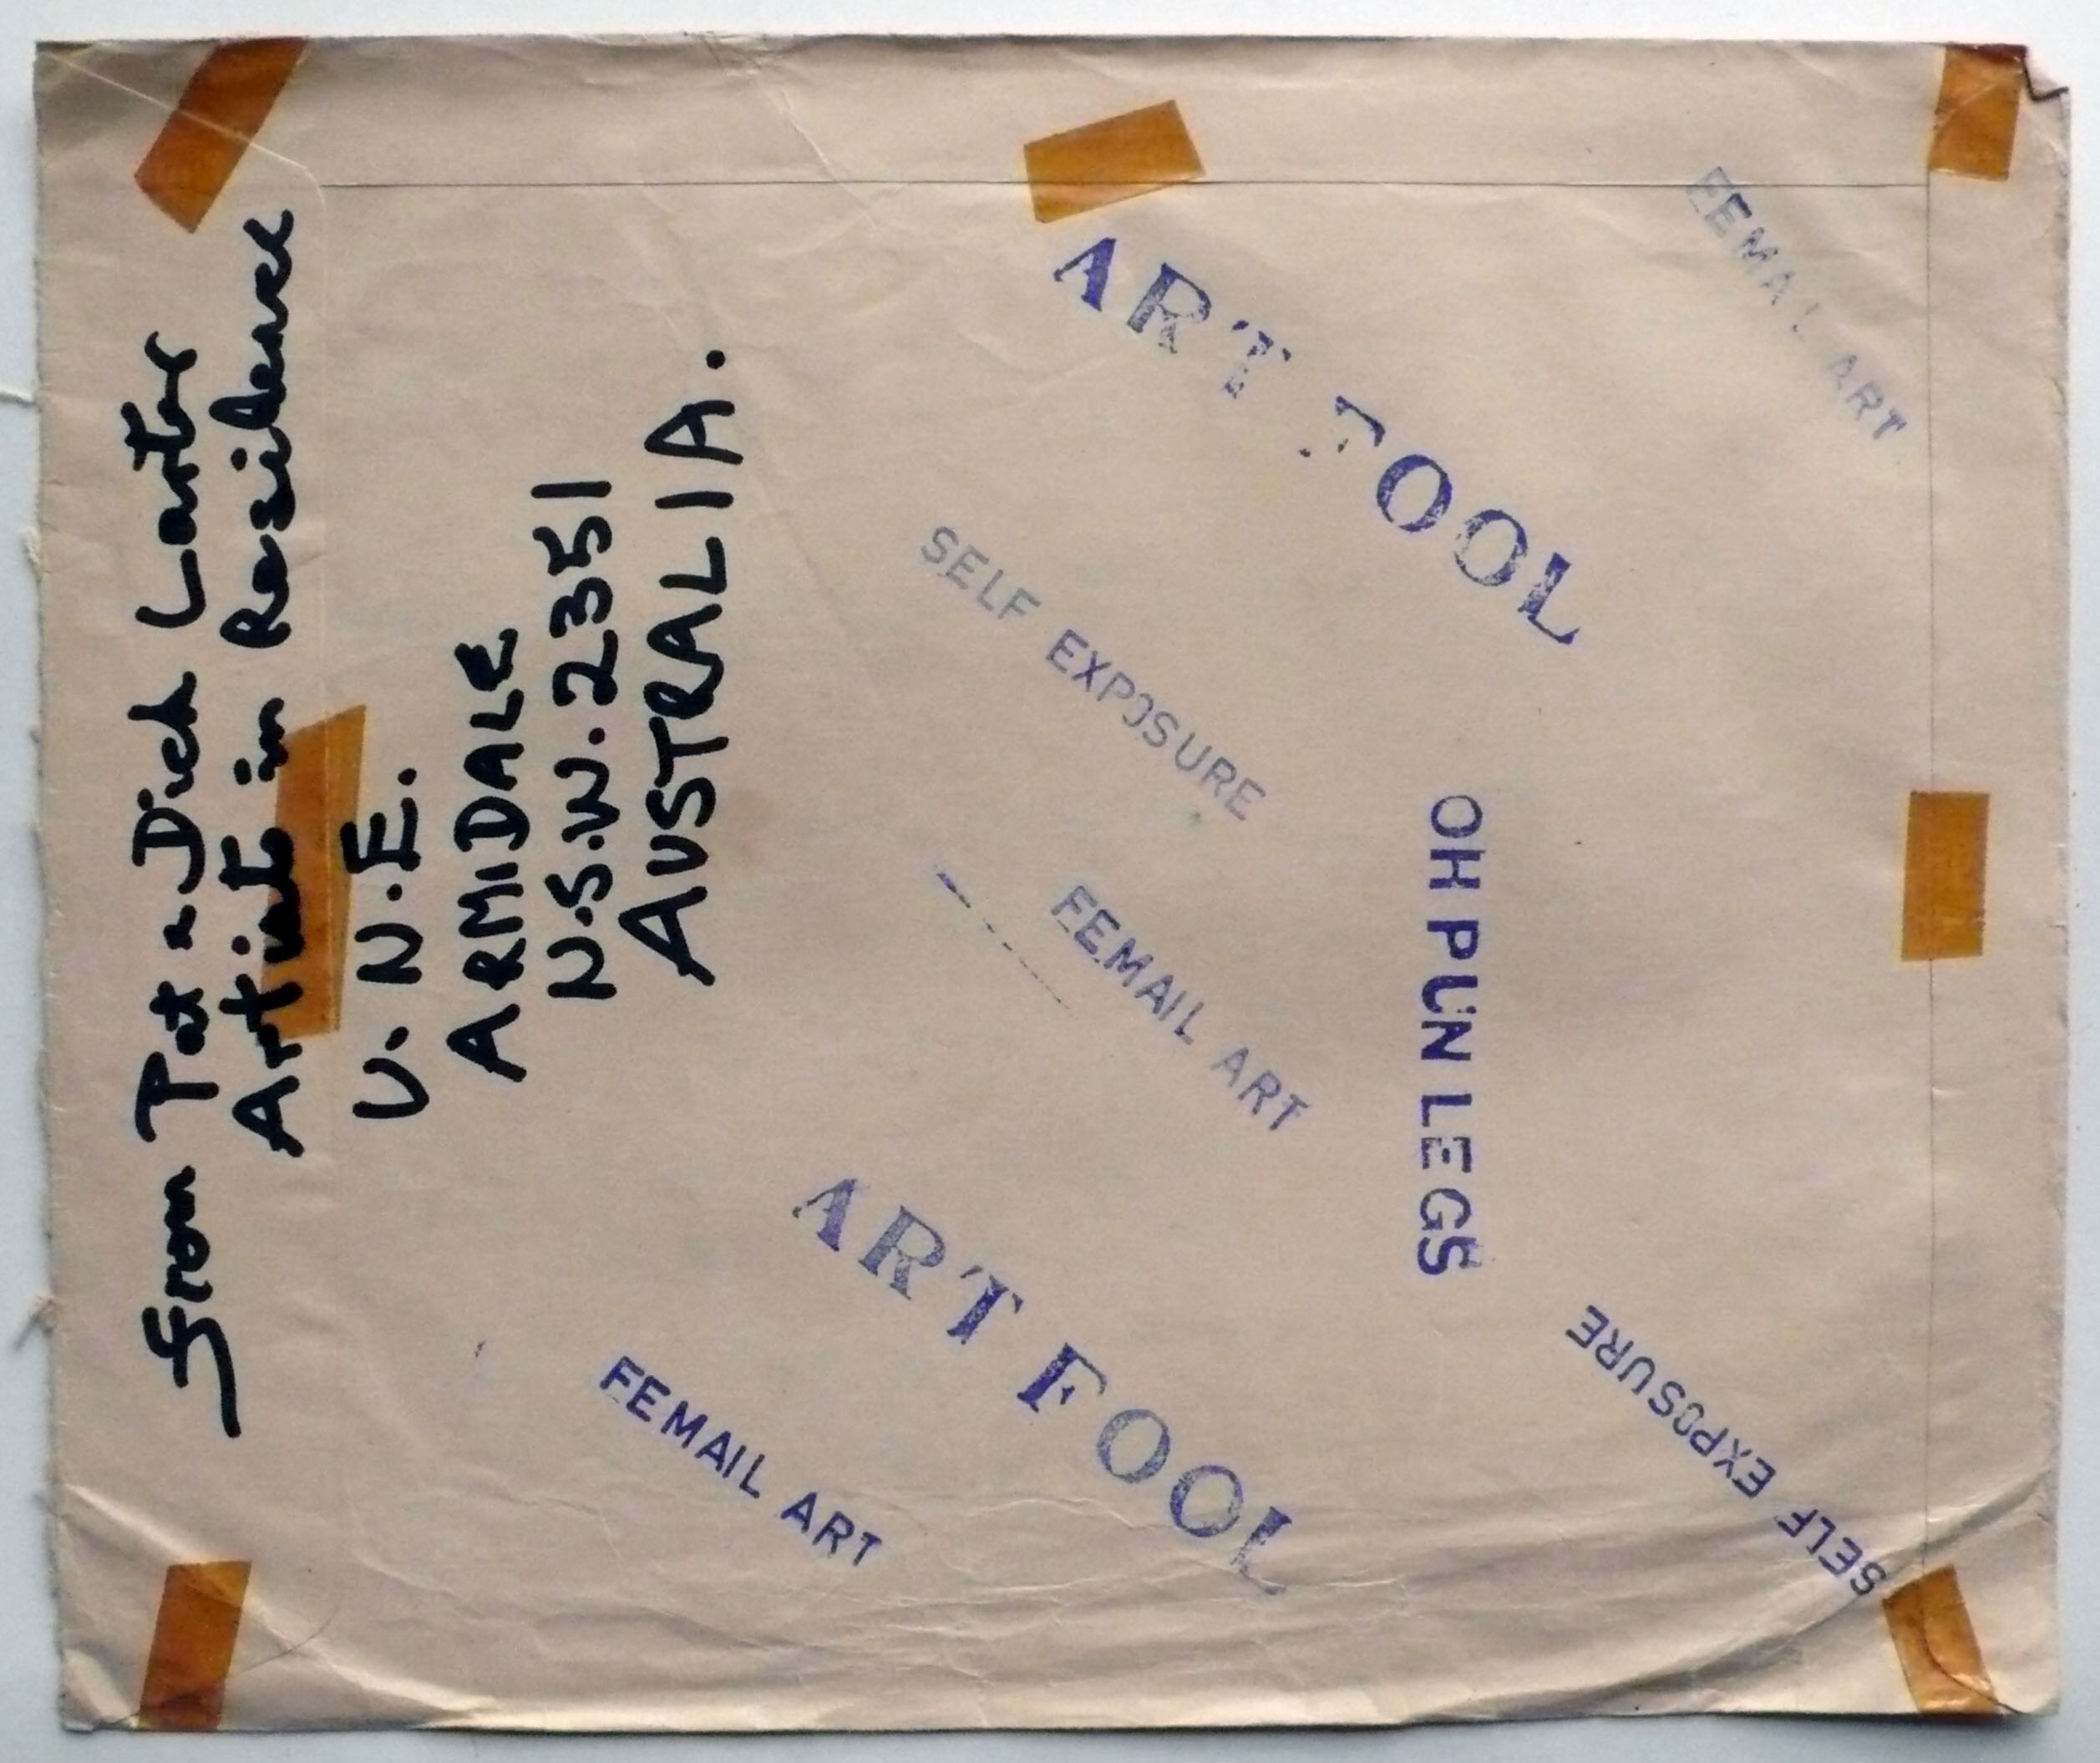 from Pat & Dick Larter
Artists in Residence
U.N.E.
ARMIDALE
N.S.W. 2351
AUSTRALIA.
ART FOOL
FEMAIL ART
SELF EXPOSURE
OH PUN LEGS
FEMAIL ART
ART FOOL
FEMAIL ART
SELF EXPOSURE